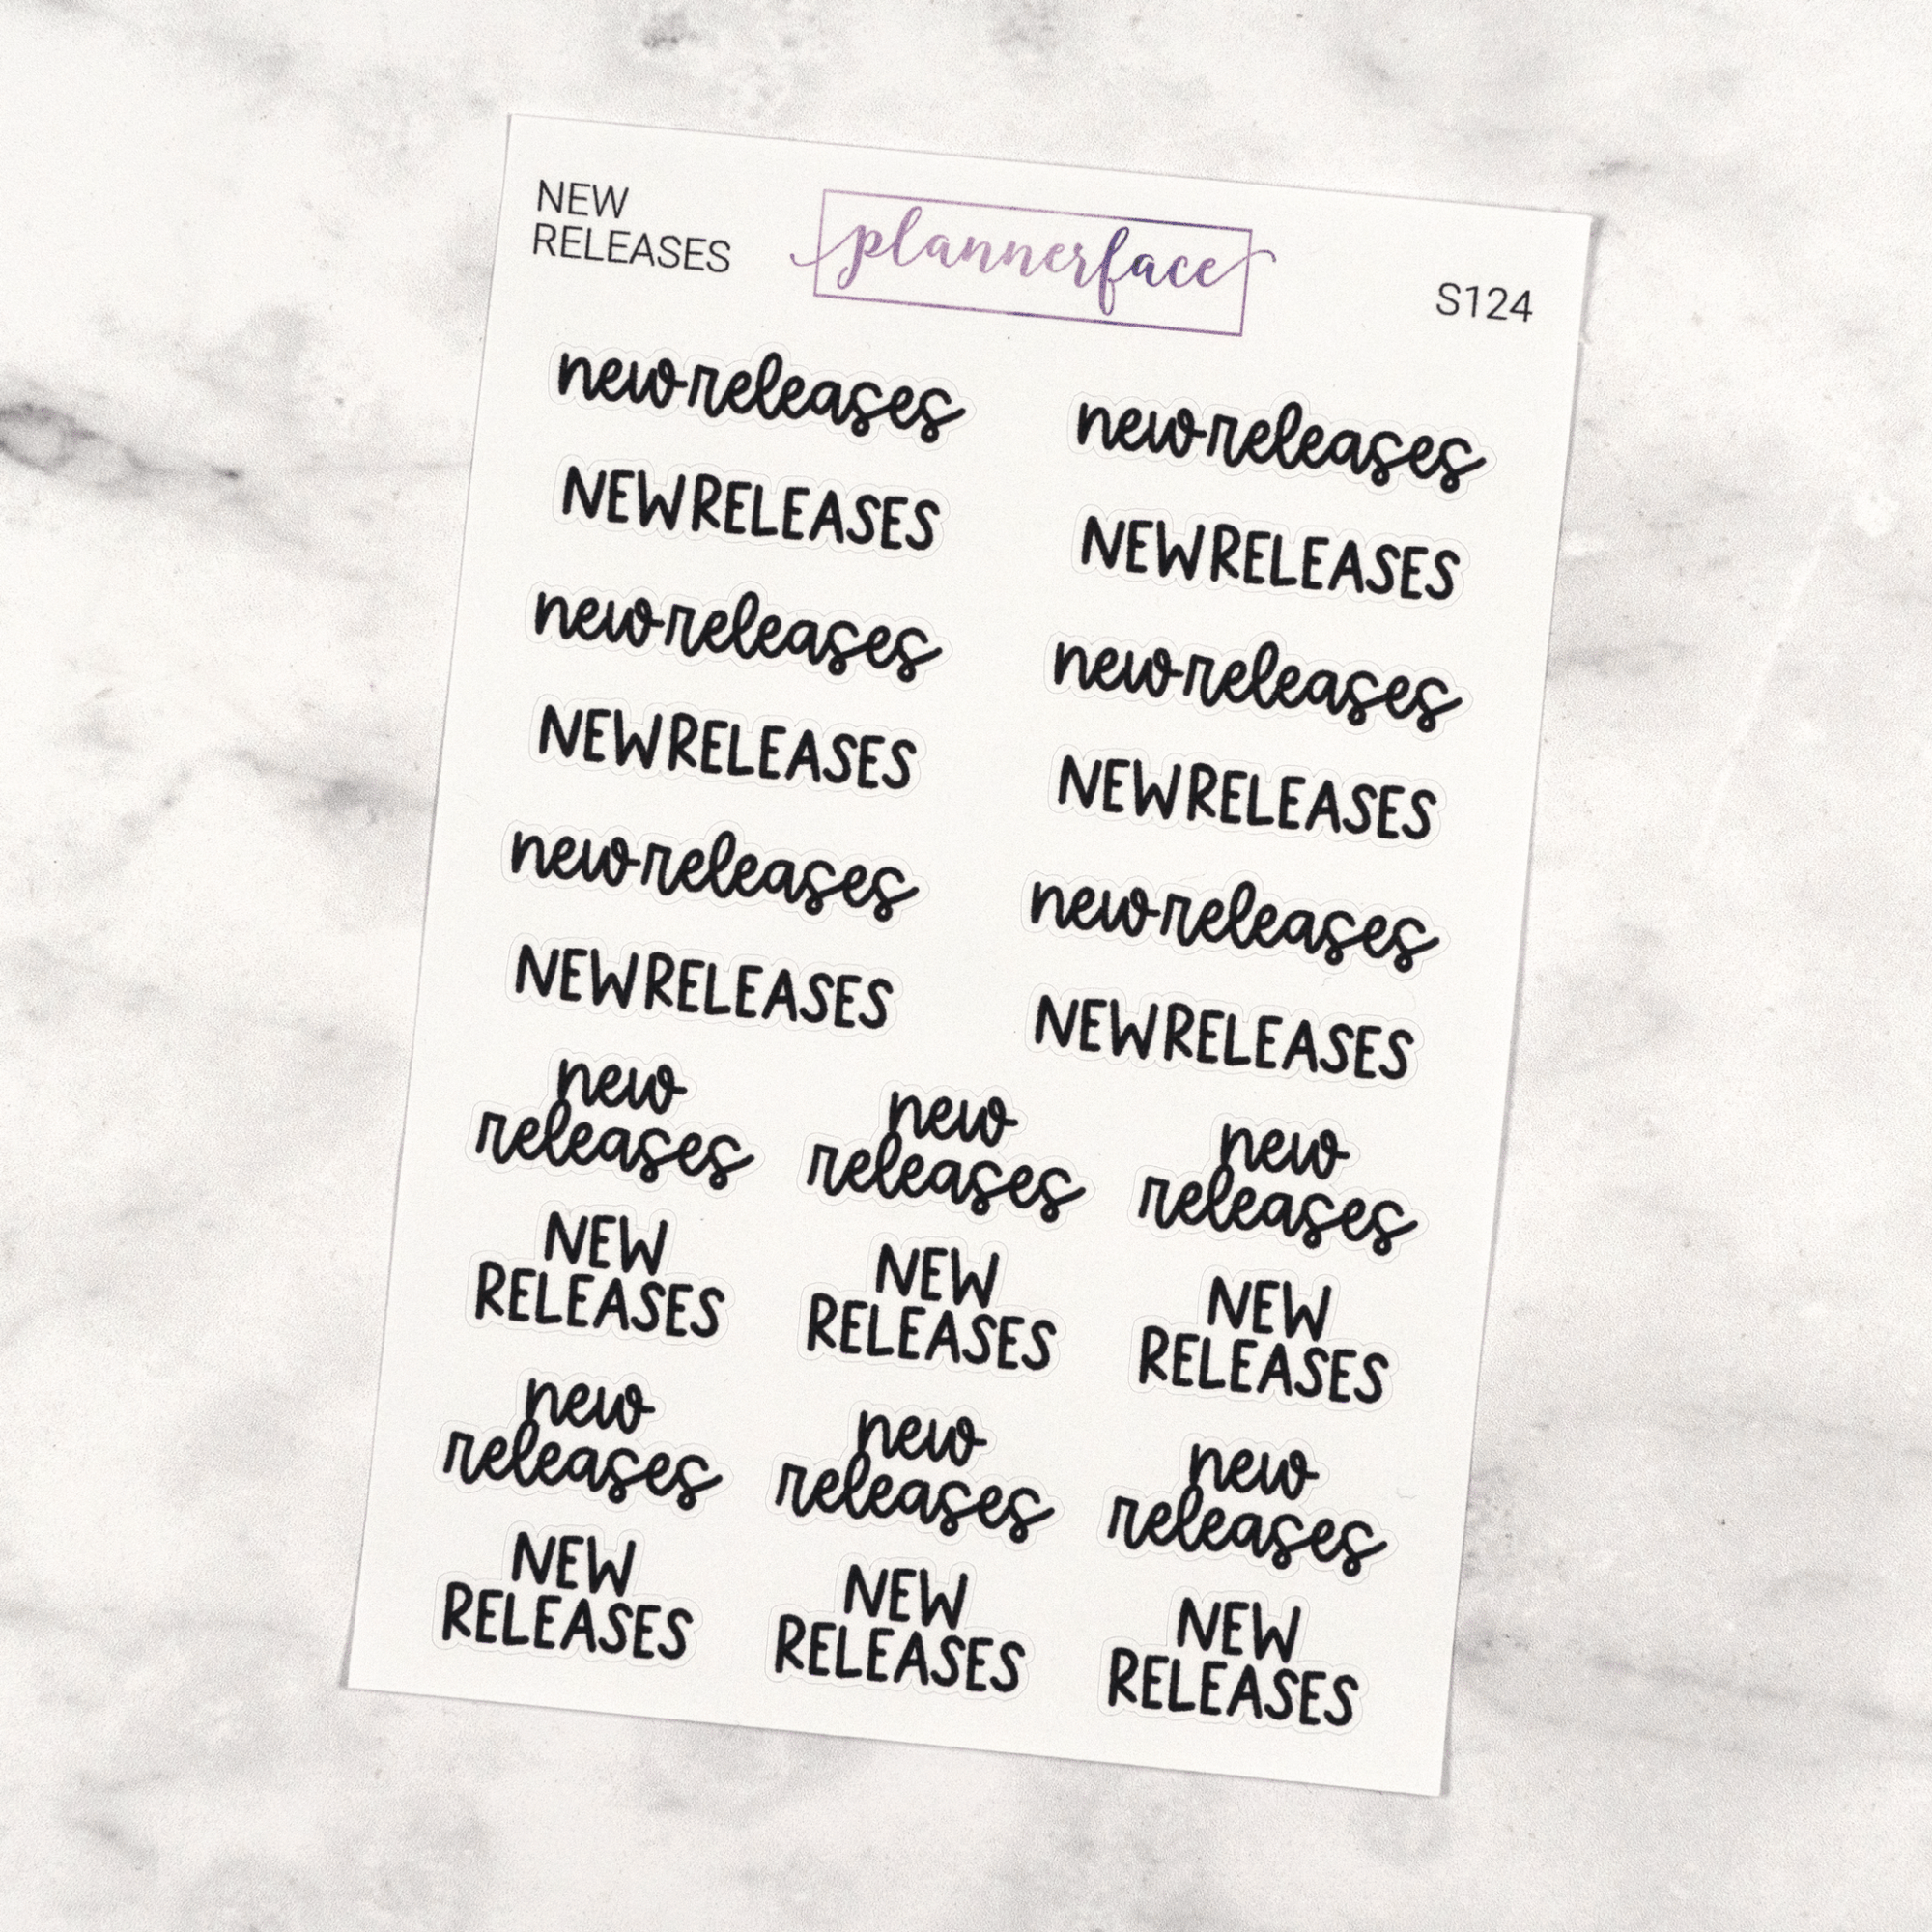 NEW
RELEASES
plannerface
S124
new releases new releases
NEW RELEASES NEW RELEASES
new releases new releases
NEW RELEASES NEW RELEASES
new releases new releases
NEW RELEASES NEW RELEASES
new new new
releases releases releases
NEW NEW NEW
RELEASES RELEASES RELEASES
new new new
releases releases releases
NEW NEW NEW
RELEASES RELEASES RELEASES